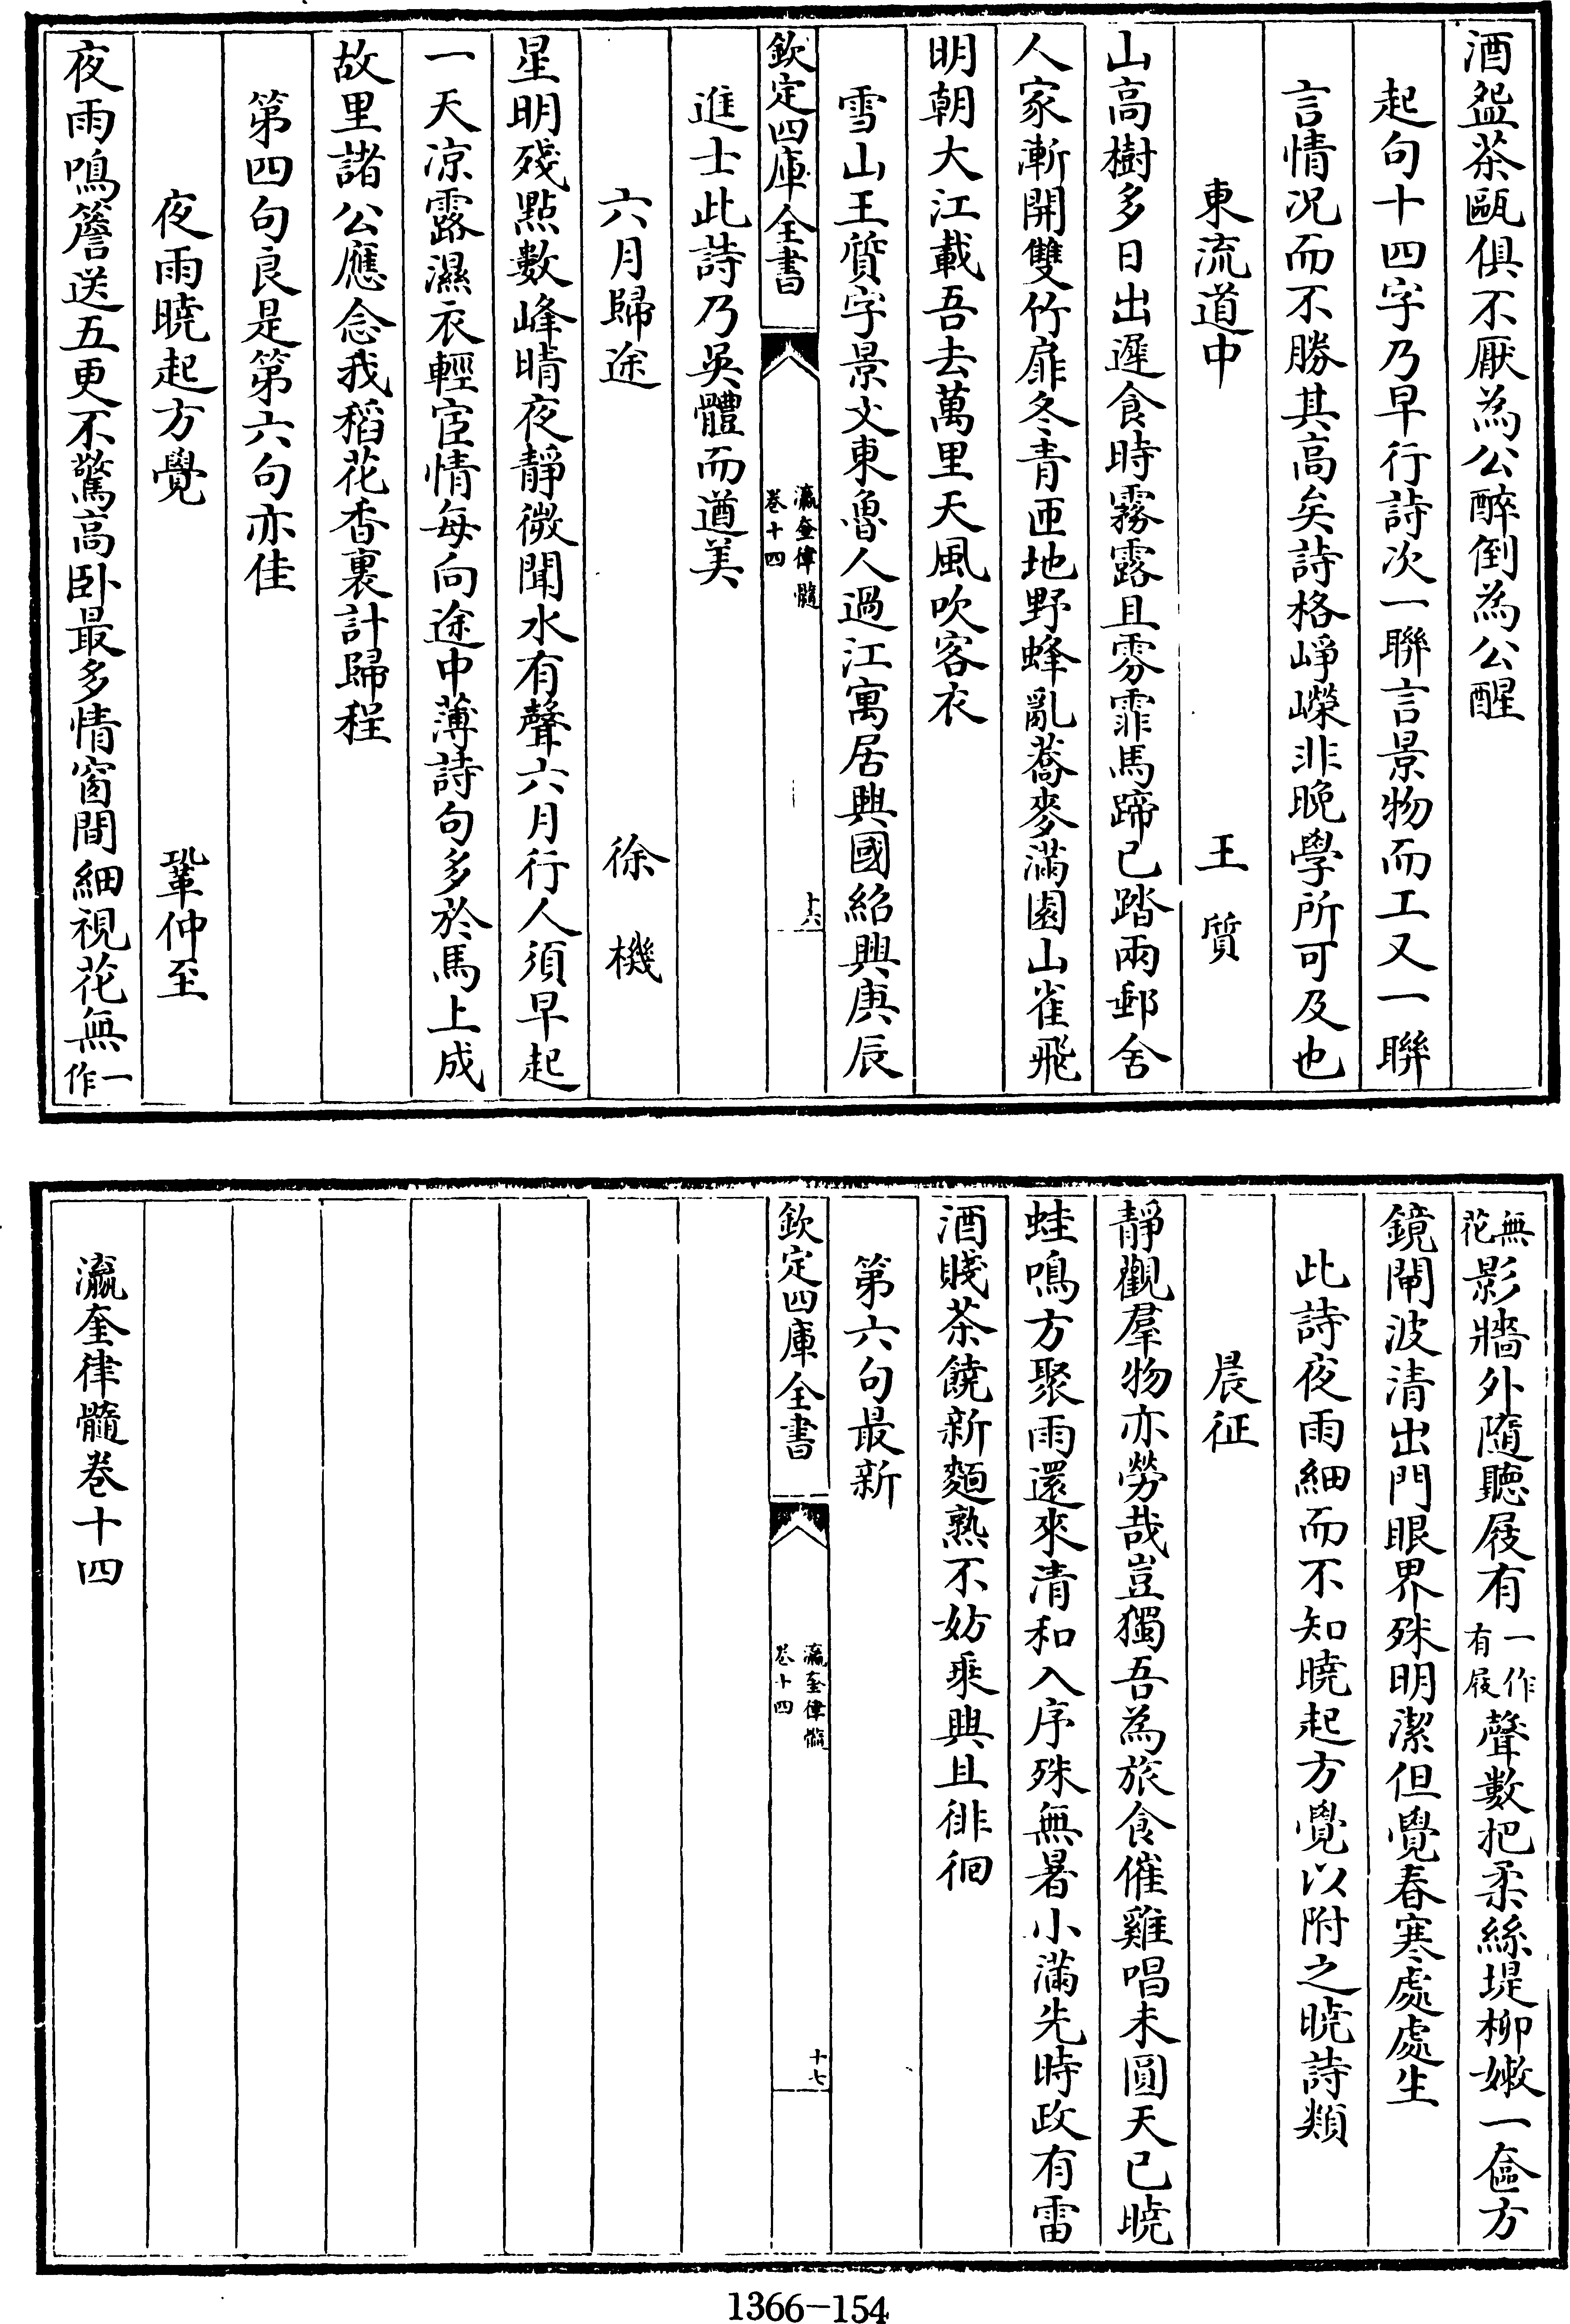 酒盌茶甌俱不厭為公醉倒為公醒
起句十四字乃早行詩次一聯言景物而工又一聯
言情况而不勝其高矣詩格崢嶸非晚學所可及也
東流道中　王質
山高樹多日出遲食時霧露且雰霏馬蹄已踏兩郵舍
人家漸開雙竹扉冬青匝地野蜂亂蕎麥滿園山雀飛
明朝大江載吾去萬里天風吹客衣
雪山王質字景文東魯人過江寓居興國紹興庚辰
欽定四庫全書
瀛奎律髓
卷十四
十六
進士此詩乃吳體而遒美
六月歸途　徐機
星明殘點數峰晴夜靜微聞水有聲六月行人須早起
一天凉露濕衣輕宦情每向途中薄詩句多於馬上成
故里諸公應念我稻花香裏計歸程
第四句良是第六句亦佳
夜雨曉起方覺　鞏仲至
夜雨鳴簷送五更不驚高卧最多情窗間細視花無一作
無花影牆外隨聽屐有一作有屐聲數把柔絲堤柳嫩一奩方
鏡閘波清出門眼界殊明潔但覺春寒處處生
此詩夜雨細而不知曉起方覺以附之曉詩類
晨征
靜觀羣物亦勞哉豈獨吾為旅食催雞唱未圓天已曉
蛙鳴方聚雨還來清和入序殊無暑小滿先時政有雷
酒賤茶饒新麵熟不妨乘興且徘徊
第六句最新
欽定四庫全書
瀛奎律髓
卷十四
十七
瀛奎律髓卷十四
1366-154